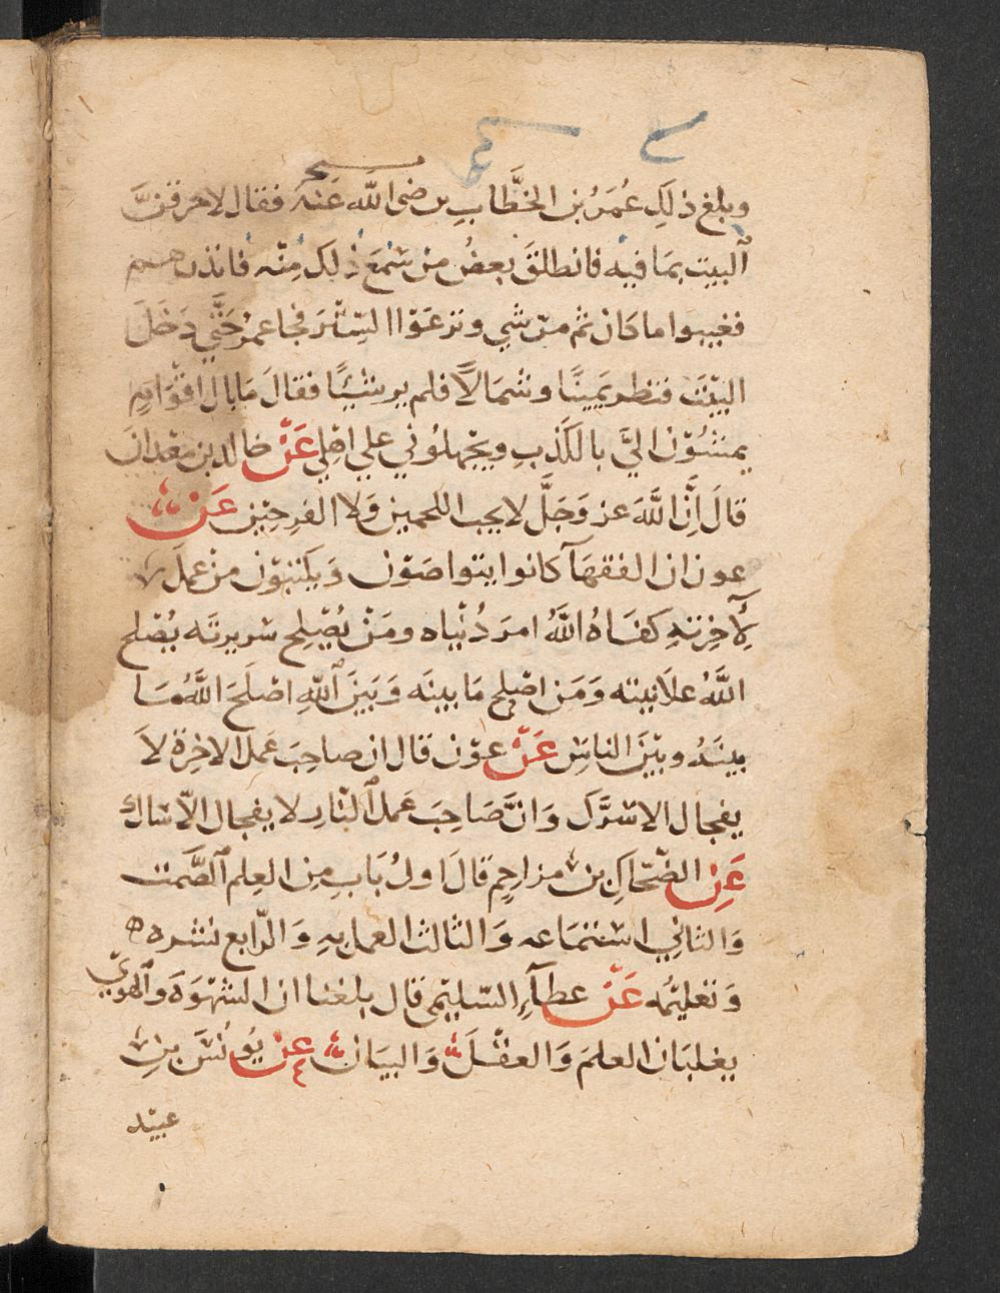 وبلغ ذلك عُمَرُ بن الخطَّابِ رضى الله عَنه فقال لاحرقنَّ
البيت بمَا فيه فانطلقَ بعضُ من سَمعَ ذلك مِنْه فانذرهم
فغيبوا ما كان ثم من شي ونزعَوْا السِّتْرَ فجا عمرُ حَتَّي دَخَلَ
البيْتَ فنظر يَمِينًا وشمَالاً فلم ير شيْئًا فقالَ مَا بال اقْوَامٍ
يمشُوْن اليَّ بالكَذبِ ويجْهلوُني علي اهْلِي عَنْ خالد بن معْدانَ
قالَ اِنَّ اللَّهَ عز وَجَلَّ لا يحب اللحمين وَلا الفرحِيْن عَنْ
عون ان الفقهآ كانوا يتواصَوْن وَيكتبوْن من عملَ
لآخِرتهِ كفَاهُ اللَّهُ امرَ دُنْياه ومَنْ يُصْلح سَريرتَه يُصْلح
اللَّهُ علاَنيته وَمَن اصْلح مَا بينَه وَبَينَ اللَّهِ اصْلَحَ اللَّهُ مَا
بينَهُ وبَيْنَ الناسِ عَنْ عوْن قال ان صاحِبَ عَمل الاخرَة لاَ
يفجاك الا سَرَّك وَانَّ صَاحِبَ عَمل النارِ لا يفجاك الاّ ساك
عَنِ الضّحّاكِ بن مزاحِمٍ قالَ اولُ بَابٍ مِن العِلم الصَّمت
وَالثاني اسْتمَاعه وَالثالث العمل بهِ وَالرّابع نشره
وَتعليْمُه عَنْ عطآءِ السّليْمِي قال بلغنا ان الشهْوَة والهَويٰ
يغلبَان العلمَ وَالعقْلَ وَالبيَانَ عن يُونُسَ بنِ
عبيْد